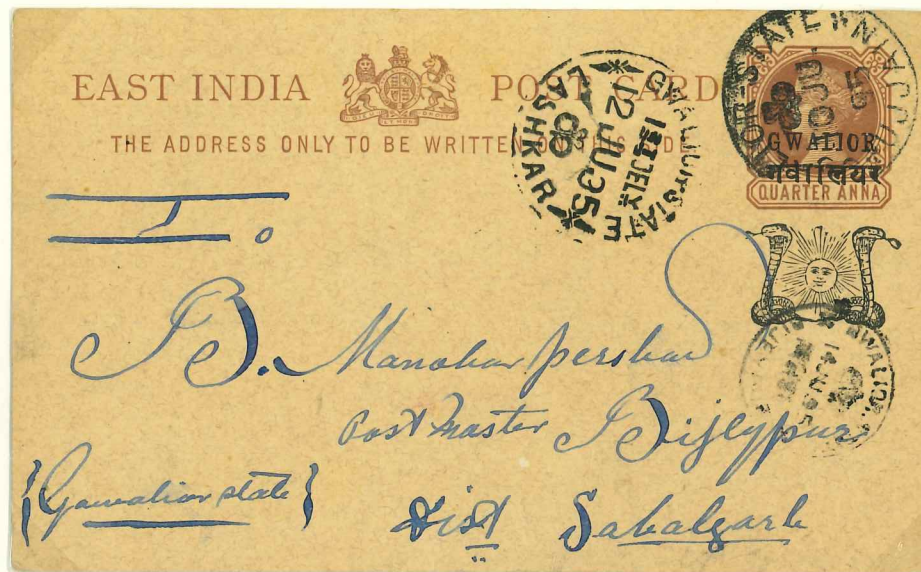 EAST INDIA POST CARD
THE ADDRESS ONLY TO BE WRITTEN ON THIS SIDE
GWALIOR
गवालियर
QUARTER ANNA
GWALIOR STATE
LASHKAR
12 JU 95
To
B. Manohar pershad
Post Master Bijeypur
Dist Sabalgarh
{Gawalior state}
GWALIOR
14 JU 95